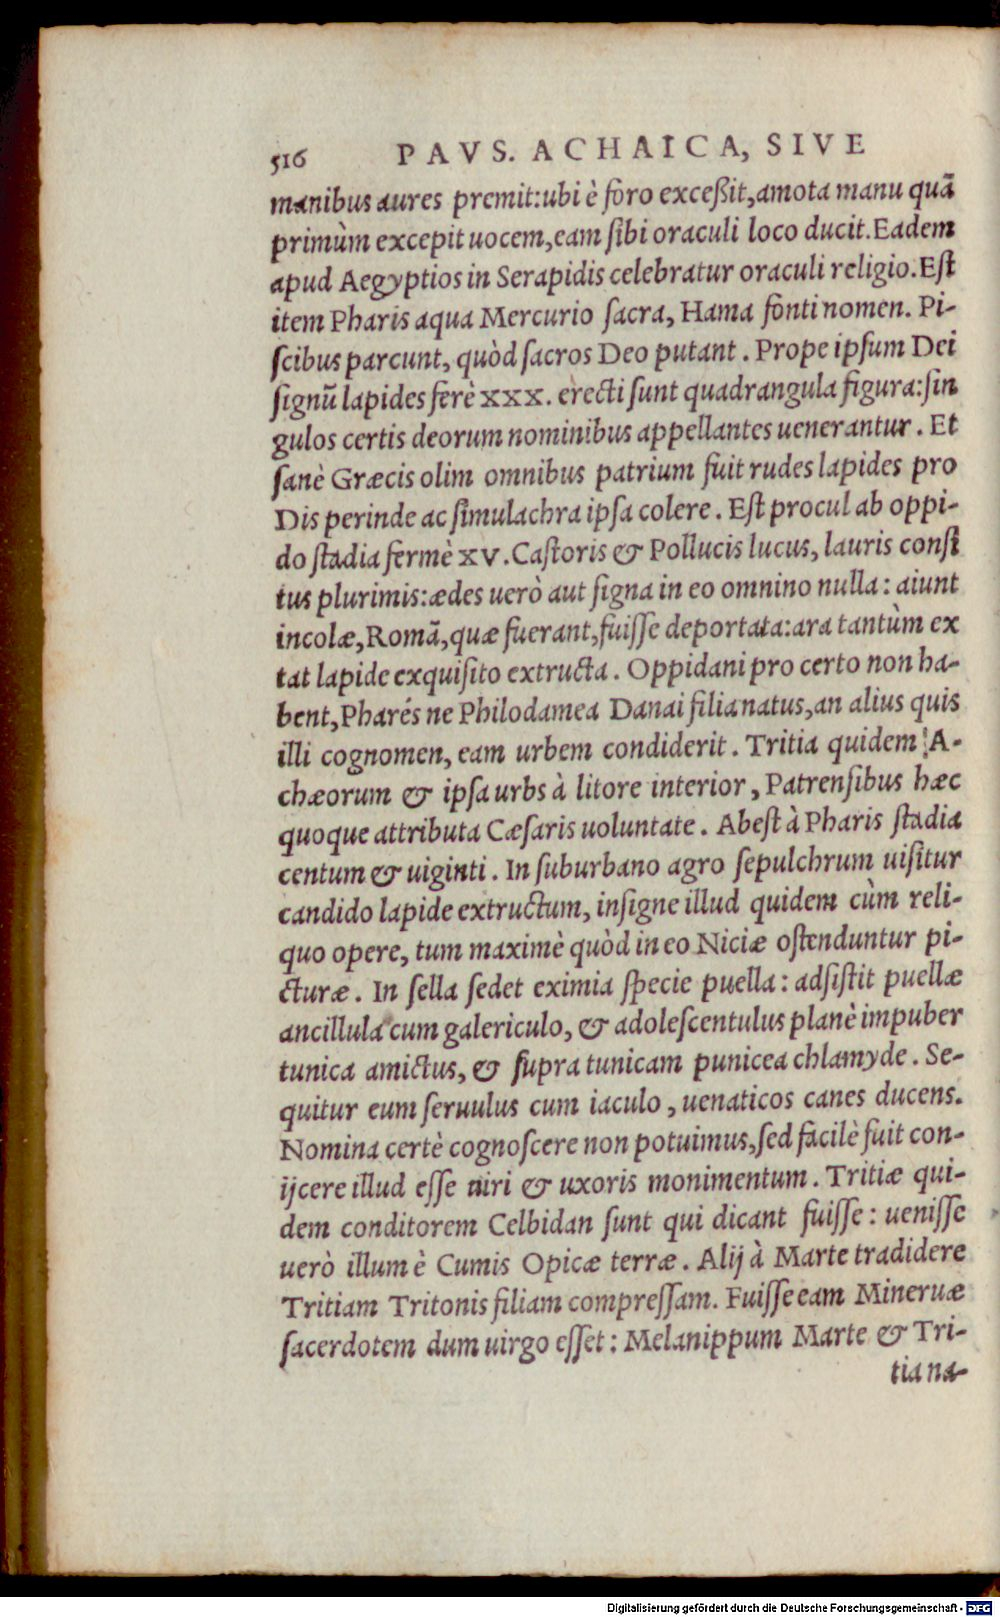 516 PAVS. ACHAICA, SIVE
manibus aures premit:ubi è foro exceßit,amota manu quã
primùm excepit uocem,eam sibi oraculi loco ducit.Eadem
apud Aegyptios in Serapidis celebratur oraculi religio.Est
item Pharis aqua Mercurio sacra, Hama fonti nomen. Pi-
scibus parcunt, quòd sacros Deo putant. Prope ipsum Dei
signũ lapides ferè XXX. erecti sunt quadrangula figura:sin
gulos certis deorum nominibus appellantes uenerantur. Et
sanè Græcis olim omnibus patrium fuit rudes lapides pro
Dis perinde ac simulachra ipsa colere. Est procul ab oppi-
do stadia fermè XV. Castoris & Pollucis lucus, lauris consi
tus plurimis:ædes uerò aut signa in eo omnino nulla: aiunt
incolæ,Romã,quæ fuerant,fuisse deportata:ara tantùm ex
tat lapide exquisito extructa. Oppidani pro certo non ha-
bent,Pharés ne Philodamea Danai filia natus,an alius quis
illi cognomen, eam urbem condiderit. Tritia quidem A-
chæorum & ipsa urbs à litore interior, Patrensibus hæc
quoque attributa Cæsaris uoluntate. Abest à Pharis stadia
centum & uiginti. In suburbano agro sepulchrum uisitur
candido lapide extructum, insigne illud quidem cùm reli-
quo opere, tum maximè quòd in eo Niciæ ostenduntur pi-
cturæ. In sella sedet eximia specie puella: adsistit puellæ
ancillula cum galericulo, & adolescentulus planè impuber
tunica amictus, & supra tunicam punicea chlamyde. Se-
quitur eum seruulus cum iaculo, uenaticos canes ducens.
Nomina certè cognoscere non potuimus,sed facilè fuit con-
ijcere illud esse uiri & uxoris monimentum. Tritiæ qui-
dem conditorem Celbidan sunt qui dicant fuisse: uenisse
uerò illum è Cumis Opicæ terræ. Alij à Marte tradidere
Tritiam Tritonis filiam compressam. Fuisse eam Mineruæ
sacerdotem dum uirgo esset: Melanippum Marte & Tri-
tia na-
Digitalisierung gefördert durch die Deutsche Forschungsgemeinschaft - DFG